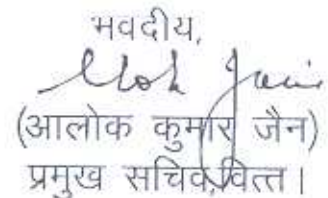 भवदीय,
Alok Jain
(आलोक कुमार जैन)
प्रमुख सचिव,वित्त।